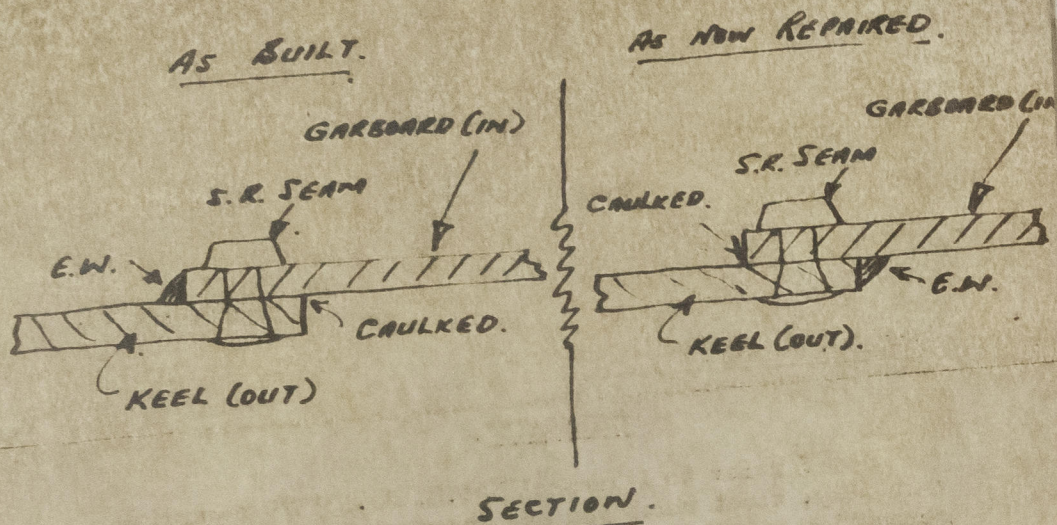 AS BUILT.
GARBOARD (IN)
S.R. SEAM
E.W.
CAULKED.
KEEL (OUT)
AS NOW REPAIRED.
GARBOARD (IN
S.R. SEAM
CAULKED.
E.W.
KEEL (OUT).
SECTION.